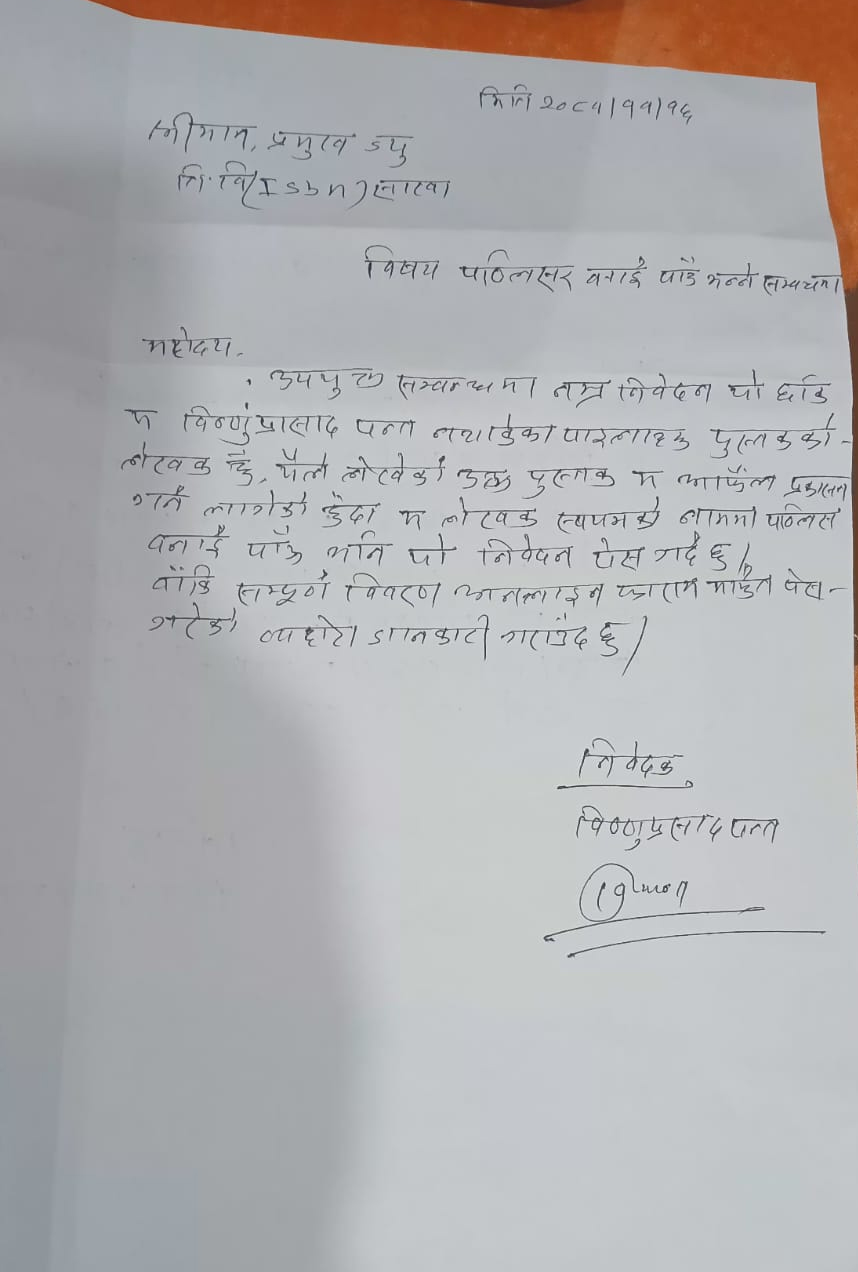 मिति २०८१।११।१६
श्रीमान, प्रमुख ज्यु
त्रि.वि(Isbn) शाखा
विषय पब्लिसर बनाई पाँउ भन्ने सम्बन्धमा
महोदय.
उपयुक्त सम्बन्धमा नम्र निवेदन यो छकि
म विष्णुप्रसाद पन्त नथाकेका पाइलाहरु पुस्तकको-
लेखक हुँ, मैले लेखेको उक्त पुस्तक म आफैले प्रकासन
गर्न लागेको हुँदा म लेखक स्वयमको नाममा पब्लिसर
बनाई पाँऊ भनि यो निवेदन पेस गर्दछु।
बाँकि सम्पूर्ण विवरण अनलाइन फाराम मार्फत पेस-
गरेको व्यहोरा जानकारी गराउँदछु।
निवेदक
विष्णुप्रसाद पन्त